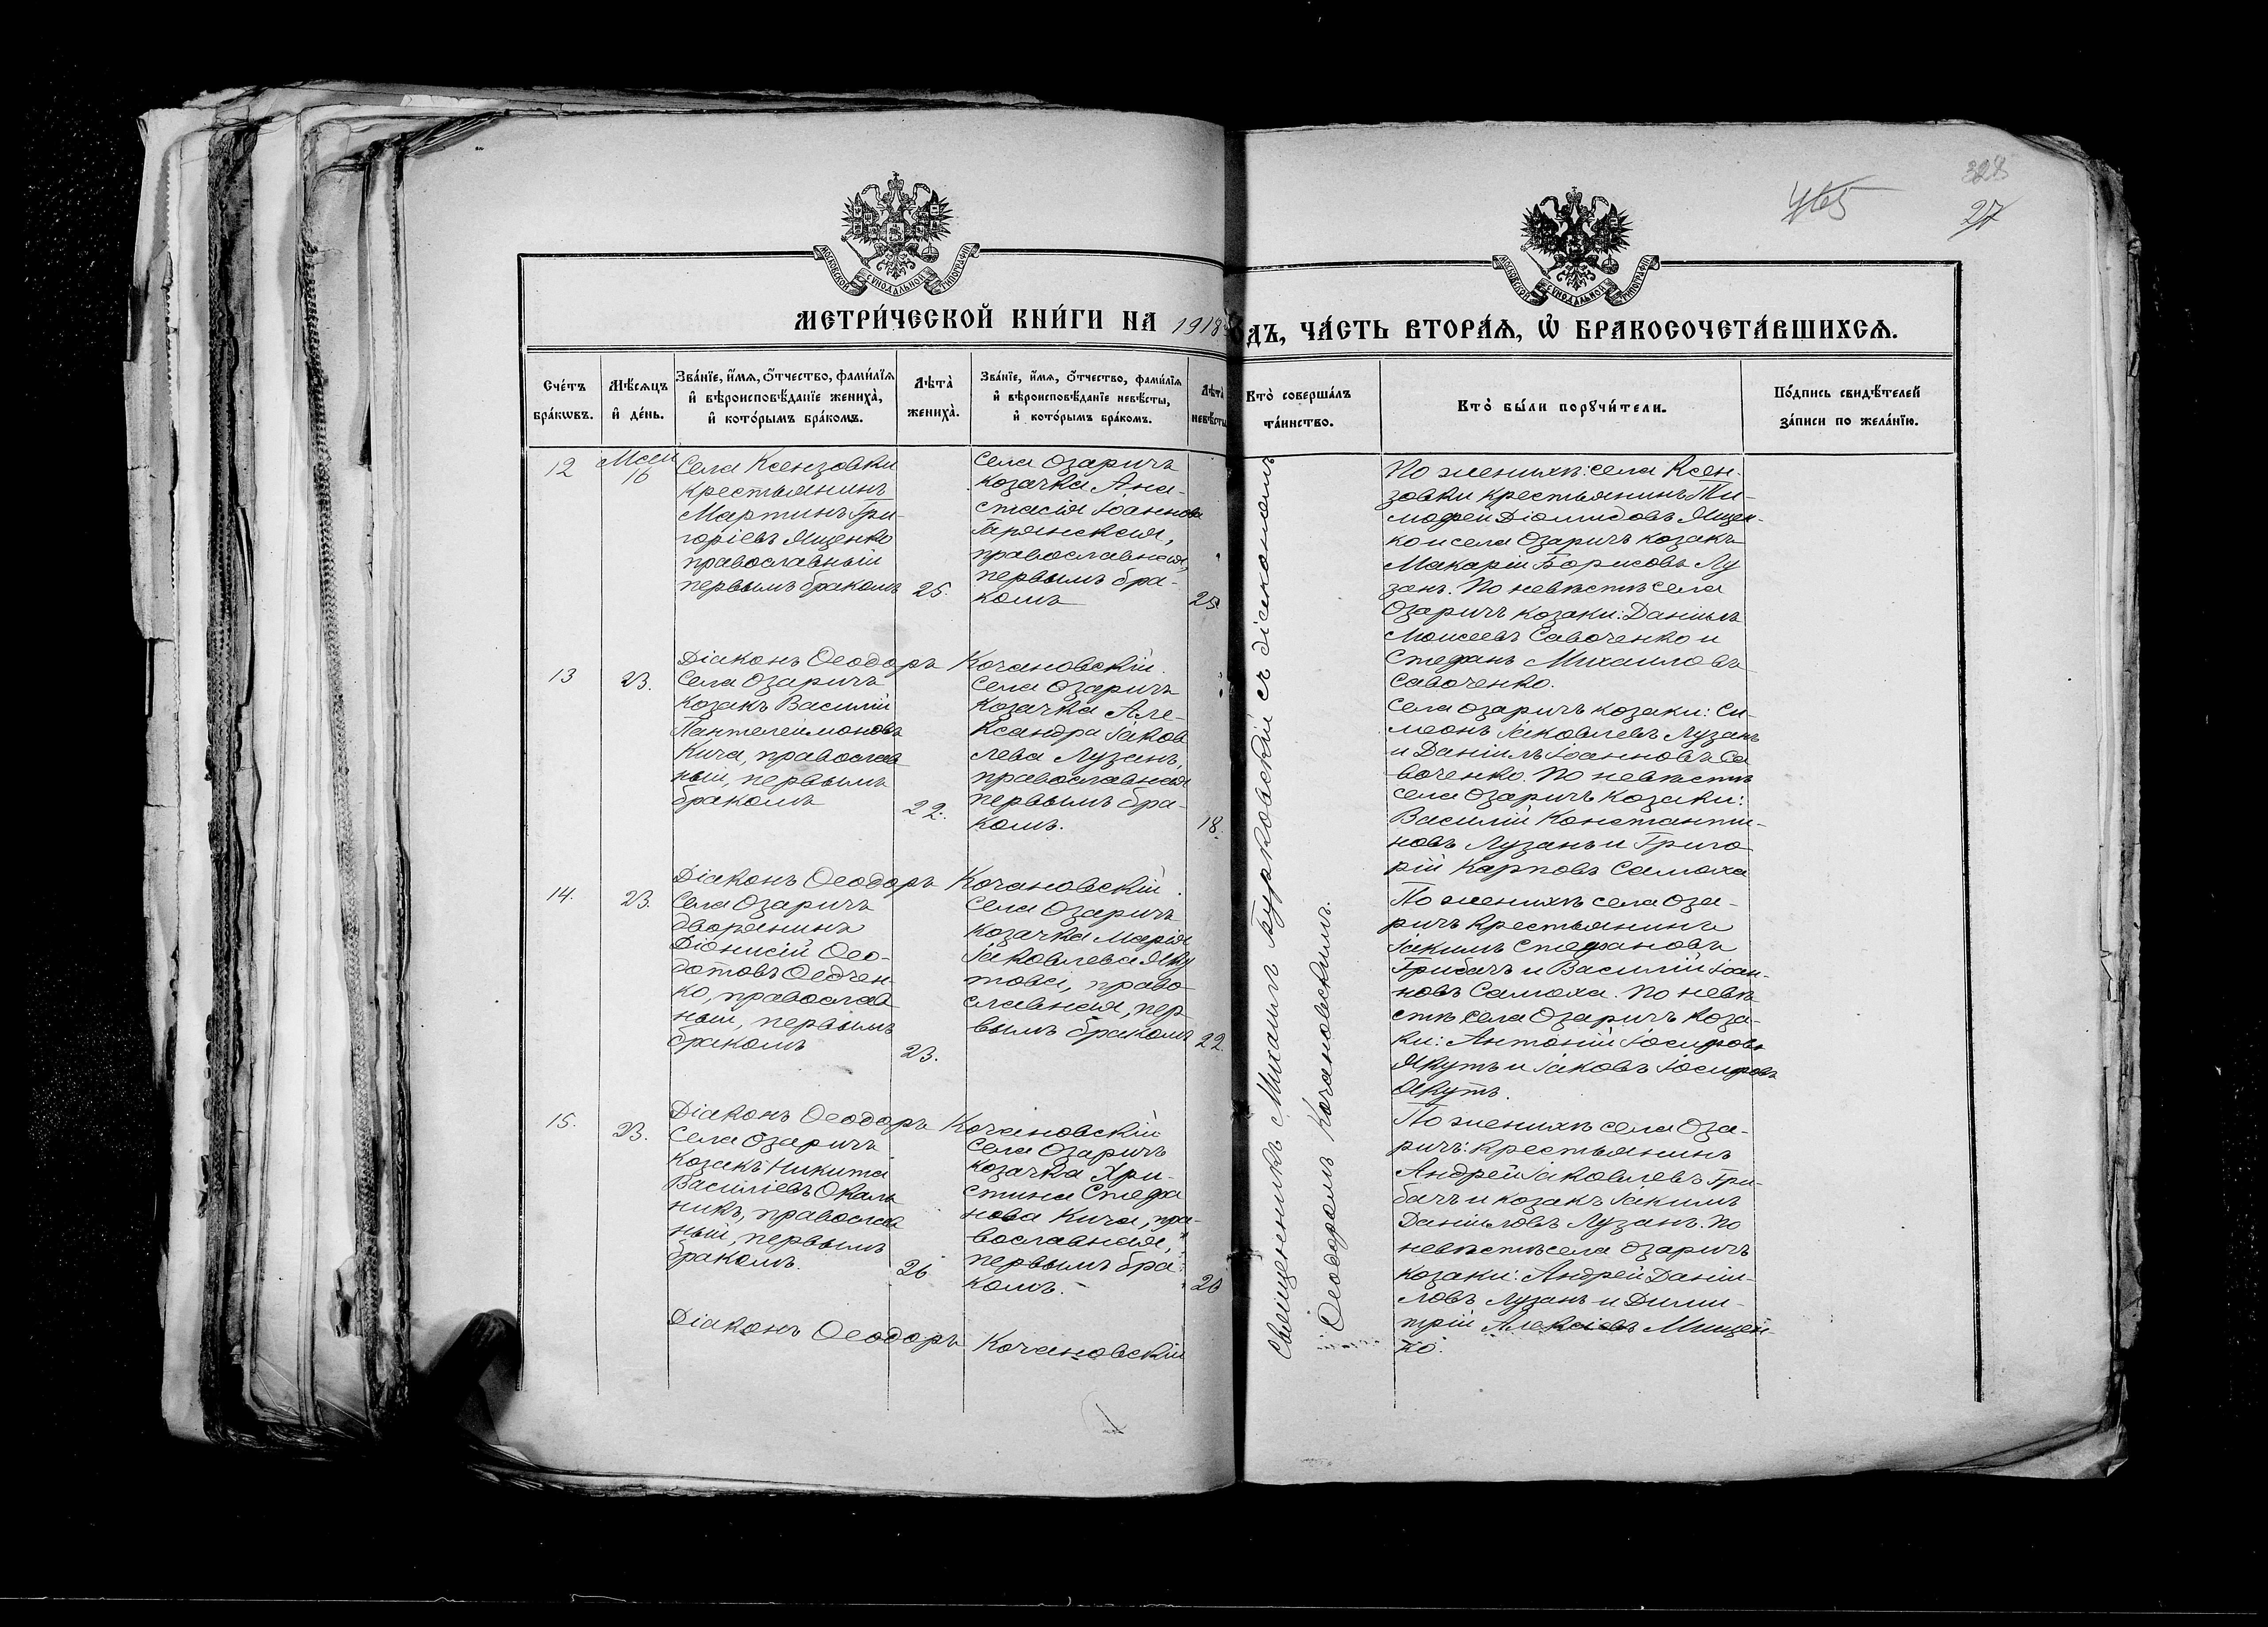 465
328
27
МОСКОВСКОЙ СѴНОДАЛЬНОЙ ТИПОГРАФІИ
МОСКОВСКОЙ СѴНОДАЛЬНОЙ ТИПОГРАФІИ
МЕТРИ́ЧЕСКОЙ КНИ́ГИ НА 1918 ГОДЪ, ЧА́СТЬ ВТОРА́Ѧ, Ѽ БРАКОСОЧЕТА́ВШИХСѦ.
Сче́тъ бра́кѡвъ.
Мѣ́сѧцъ и҆ де́нь.
Зва́нїе, и҆́мѧ, ѻ҆́тчество, фами́лїѧ и҆ вѣроисповѣ́данїе жениха̀, и҆ кото́рымъ бра́комъ.
Лѣта̀ жениха̀.
Зва́нїе, и҆́мѧ, ѻ҆́тчество, фами́лїѧ и҆ вѣроисповѣ́данїе невѣ́сты, и҆ кото́рымъ бра́комъ.
Лѣта̀ невѣ́сты
Кто̀ соверша́лъ та́инство.
Кто̀ бы́ли порꙋчи́тели.
По́дпись свидѣ́телей за́писи по жела́нїю.
12
Маи
16
Села Ксензовки
крестьянинъ
Мартинъ Гри-
горіевъ Ященко
православный
первымъ бракомъ
25.
Села Озаричъ
козачка Ана-
стасія Іоаннова
Брянская,
православная,
первымъ бра-
комъ
25
По женихѣ: села Ксен-
зовки крестьянинъ Ти-
мофей Діомидовъ Ящен-
ко и села Озаричъ козакъ
Макарій Борисовъ Лу
занъ. По невѣстѣ села
Озаричъ козаки: Даніилъ
Моисеевъ Савоченко и
Стефанъ Михаиловъ
Савоченко.
Діаконъ Ѳеодоръ Кочановскій.
13
23.
Села Озаричъ
козакъ Василій
Пантелеимоновъ
Кича, православ
ный, первымъ
бракомъ
22.
Села Озаричъ
козачка Але-
ксандра Іаков
лева Лузанъ,
православная
первымъ бра-
комъ.
18.
Села Озаричъ козаки: Си-
меонъ Іаковлевъ Лузанъ
и Даніилъ Іоанновъ Са
воченко. По невѣстѣ
села Озаричъ козаки:
Василій Константи-
новъ Лузанъ и Григо
рій Карповъ Самоха
Діаконъ Ѳеодоръ Кочановскій.
14.
23.
Села Озаричъ
дворянинъ
Діонисій Ѳео-
дотовъ Ѳедчен-
ко, православ
ный, первымъ
бракомъ
23.
Села Озаричъ
козачка Марія
Іаковлева Яку
това, право
славная, пер
вымъ бракомъ
22.
По женихѣ села Оза-
ричъ крестьянинъ
Іакимъ Стефановъ
Грибачъ и Василій Іоан-
новъ Самоха. По невѣ
стѣ села Озаричъ коза-
ки: Антоній Іосифовъ
Якутъ и Іаковъ Іосифовъ
Якутъ.
Діаконъ Ѳеодоръ Кочановскій
15.
23.
Села Озаричъ
козакъ Никита
Василіевъ Окаль
никъ, православ
ный, первымъ
бракомъ.
26
Села Озаричъ
козачка Хри-
стина Стефа
нова Кича, пра-
вославная,
первымъ бра
комъ.
20
По женихѣ села Оза-
ричъ: крестьянинъ
Андрей Іаковлевъ Гри-
бачъ и козакъ Іакимъ
Даніиловъ Лузанъ. По
невѣстѣ села Озаричъ
козаки: Андрей Даніи-
ловъ Лузанъ и Дими-
трій Алексіевъ Мищен-
ко.
Діаконъ Ѳеодоръ Кочановскій
Священникъ Михаилъ Бурковскій съ діакономъ
Ѳеодоромъ Кочановскимъ.